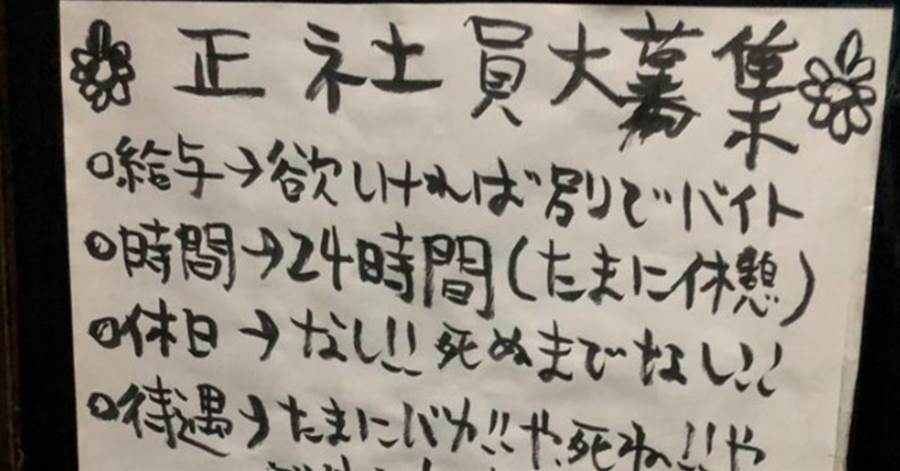 正社員大募集
○給与→欲しければ別でバイト
○時間→24時間(たまに休憩)
○休日→なし!!死ぬまでなし!!
○待遇→たまにバカ!!や死ね!!や